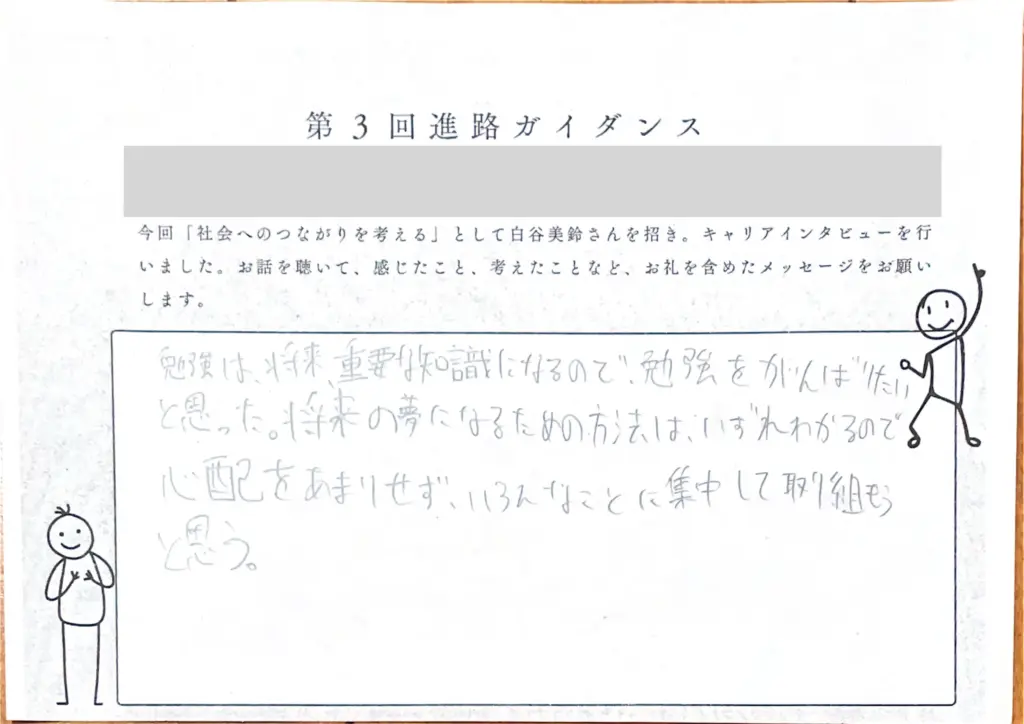 第3回進路ガイダンス
今回「社会へのつながりを考える」として白谷美鈴さんを招き。キャリアインタビューを行
いました。お話を聴いて、感じたこと、考えたことなど、お礼を含めたメッセージをお願い
します。
勉強は、将来、重要な知識になるので、勉強をがんばりたい
と思った。将来の夢になるための方法は、いずれわかるので
心配をあまりせず、いろんなことに集中して取り組もう
と思う。